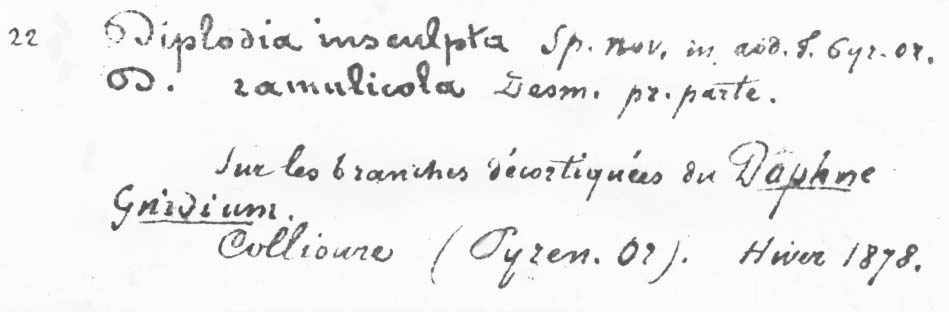 22 Diplodia insculpta Sp. nov. in add. F. Pyr. or.
D. ramulicola Desm. pr. parte.
Sur les branches décortiquées du Daphne
Gnidium.
Collioure (Pyren. Or). Hiver 1878.